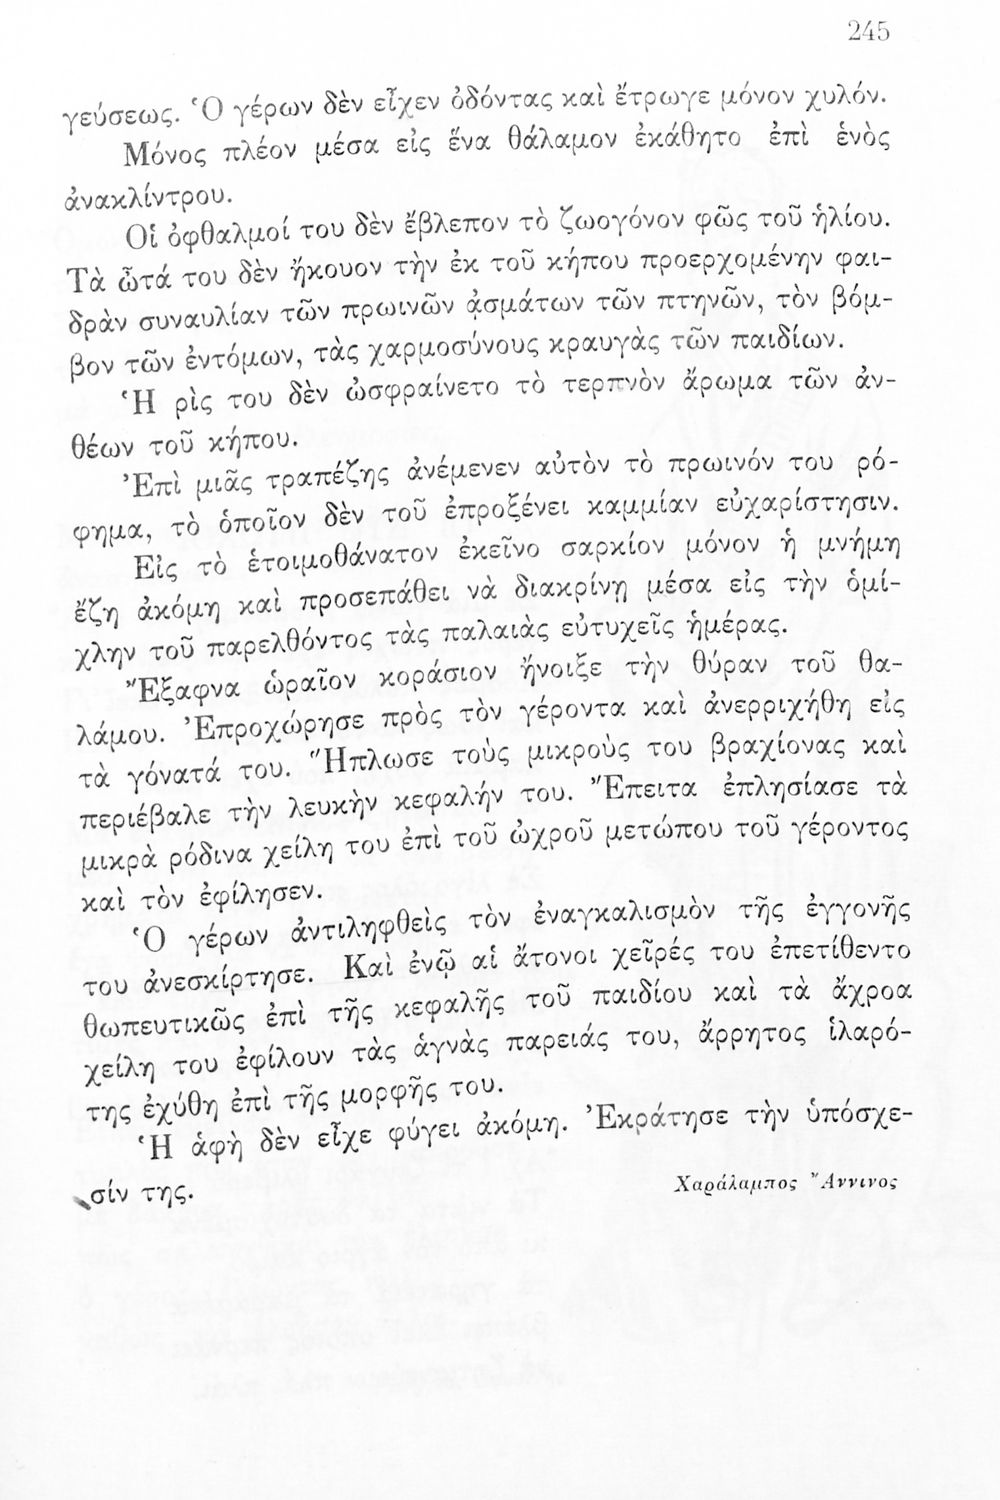 245
γεύσεως. Ὁ γέρων δὲν εἶχεν ὀδόντας καὶ ἔτρωγε μόνον χυλόν.
Μόνος πλέον μέσα εἰς ἕνα θάλαμον ἐκάθητο ἐπὶ ἑνὸς
ἀνακλίντρου.
Οἱ ὀφθαλμοί του δὲν ἔβλεπον τὸ ζωογόνον φῶς τοῦ ἡλίου.
Τὰ ὦτά του δὲν ἤκουον τὴν ἐκ τοῦ κήπου προερχομένην φαι-
δρὰν συναυλίαν τῶν πρωινῶν ᾀσμάτων τῶν πτηνῶν, τὸν βόμ-
βον τῶν ἐντόμων, τὰς χαρμοσύνους κραυγὰς τῶν παιδίων.
Ἡ ρὶς του δὲν ὠσφραίνετο τὸ τερπνὸν ἄρωμα τῶν ἀν-
θέων τοῦ κήπου.
Ἐπὶ μιᾶς τραπέζης ἀνέμενεν αὐτὸν τὸ πρωινόν του ρό-
φημα, τὸ ὁποῖον δὲν τοῦ ἐπροξένει καμμίαν εὐχαρίστησιν.
Εἰς τὸ ἑτοιμοθάνατον ἐκεῖνο σαρκίον μόνον ἡ μνήμη
ἔζη ἀκόμη καὶ προσεπάθει νὰ διακρίνῃ μέσα εἰς τὴν ὁμί-
χλην τοῦ παρελθόντος τὰς παλαιὰς εὐτυχεῖς ἡμέρας.
Ἔξαφνα ὡραῖον κοράσιον ἤνοιξε τὴν θύραν τοῦ θα-
λάμου. Ἐπροχώρησε πρὸς τὸν γέροντα καὶ ἀνερριχήθη εἰς
τὰ γόνατά του. Ἥπλωσε τοὺς μικροὺς του βραχίονας καὶ
περιέβαλε τὴν λευκὴν κεφαλήν του. Ἔπειτα ἐπλησίασε τὰ
μικρὰ ρόδινα χείλη του ἐπὶ τοῦ ὠχροῦ μετώπου τοῦ γέροντος
καὶ τὸν ἐφίλησεν.
Ὁ γέρων ἀντιληφθεὶς τὸν ἐναγκαλισμὸν τῆς ἐγγονῆς
του ἀνεσκίρτησε. Καὶ ἐνῷ αἱ ἄτονοι χεῖρές του ἐπετίθεντο
θωπευτικῶς ἐπὶ τῆς κεφαλῆς τοῦ παιδίου καὶ τὰ ἄχροα
χείλη του ἐφίλουν τὰς ἁγνὰς παρειάς του, ἄρρητος ἱλαρό-
της ἐχύθη ἐπὶ τῆς μορφῆς του.
Ἡ ἁφὴ δὲν εἶχε φύγει ἀκόμη. Ἐκράτησε τὴν ὑπόσχε-
σίν της.
Χαράλαμπος Ἄννινος